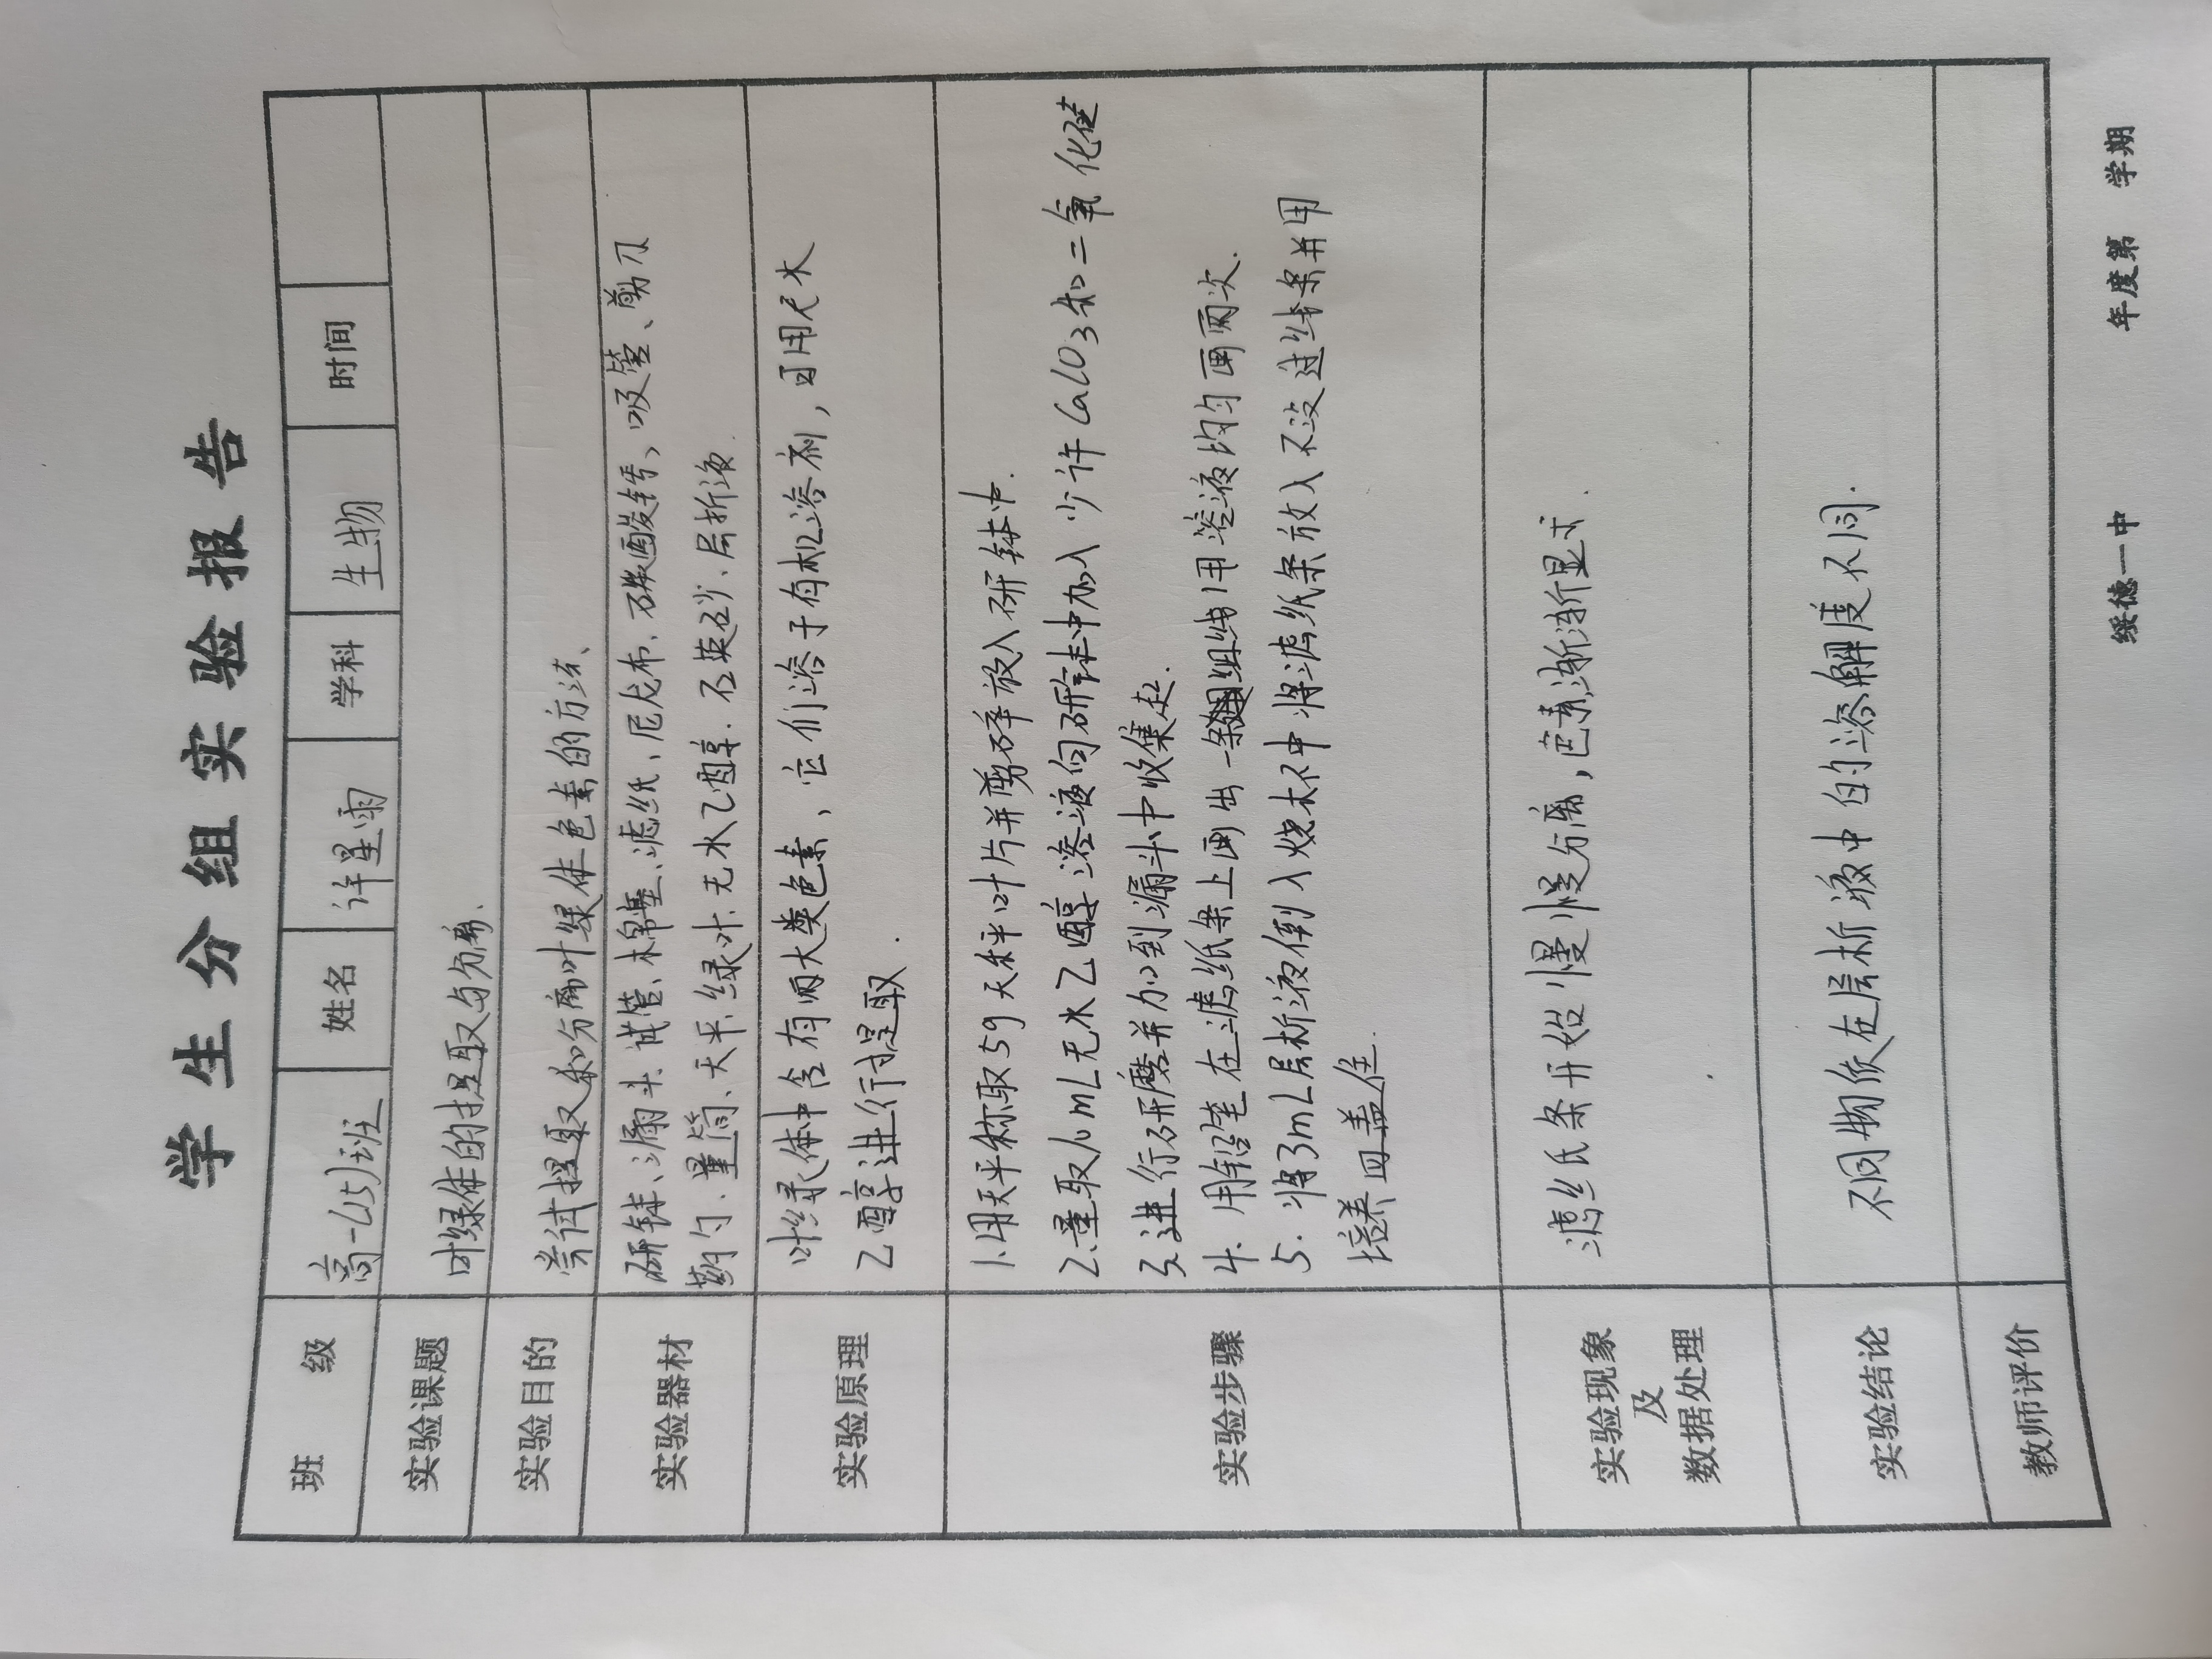 学生分组实验报告
班 级 高一(5)班 姓名 许星雨 学科 生物 时间
实验课题 叶绿体的提取与分离.
实验目的 尝试提取和分离叶绿体色素的方法、
实验器材 研钵、漏斗、试管、棉塞、滤纸、尼龙布、碳酸钙、吸管、剪刀
药勺、量筒、天平、绿叶、无水乙醇、石英砂、层析液.
实验原理 叶绿体中含有两大类色素、它们溶于有机溶剂,因用无水
乙醇进行提取.
实验步骤 1.用天平称取5g天秤叶片并剪碎放入研钵中.
2.量取10mL无水乙醇溶液向研钵中加入少许CaCO3和二氧化硅
3.进行研磨并加到漏斗中收集起.
4.用铅笔在滤纸条上画出一条细线用滤液均匀画两次.
5.将3mL层析液倒入烧杯中将滤纸条放入不没过线条并用
培养皿盖住.
实验现象
及
数据处理
滤纸条开始慢慢分离,色素渐渐显示.
实验结论 不同物质在层析液中的溶解度不同.
教师评价
绥德一中 年度第 学期